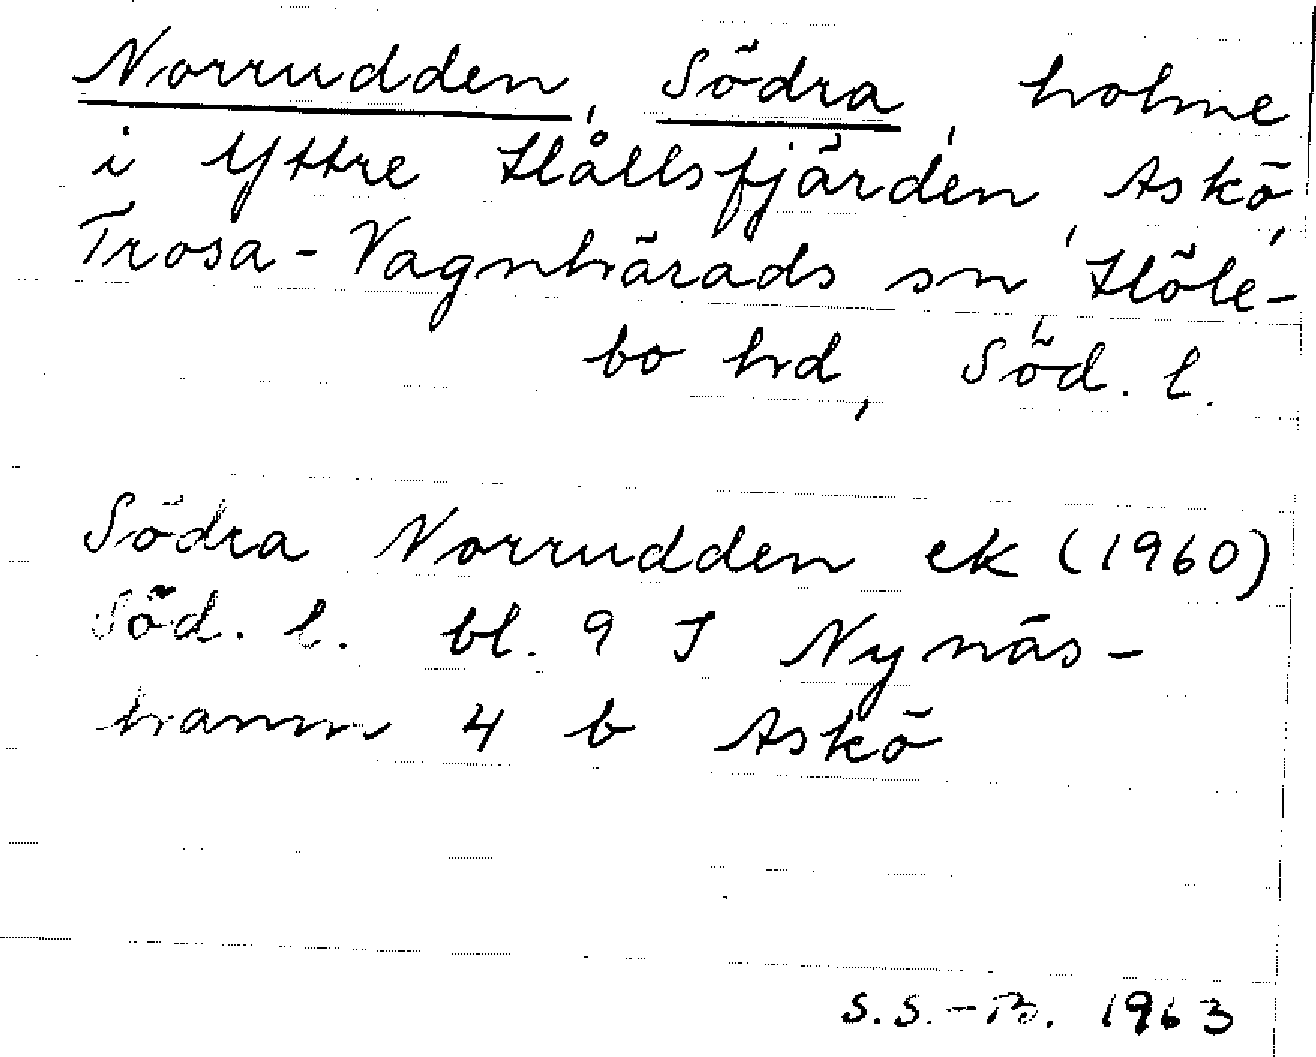 Norrudden, Södra, holme
i Yttre Hållsfjärden, Askö,
Trosa-Vagnhärads sn, Höle-
bo hd, Söd. l.
Södra Norrudden ek (1960)
Söd. l. bl. 9 J Nynäs-
hamn 4 b Askö
S.S.-B. 1963